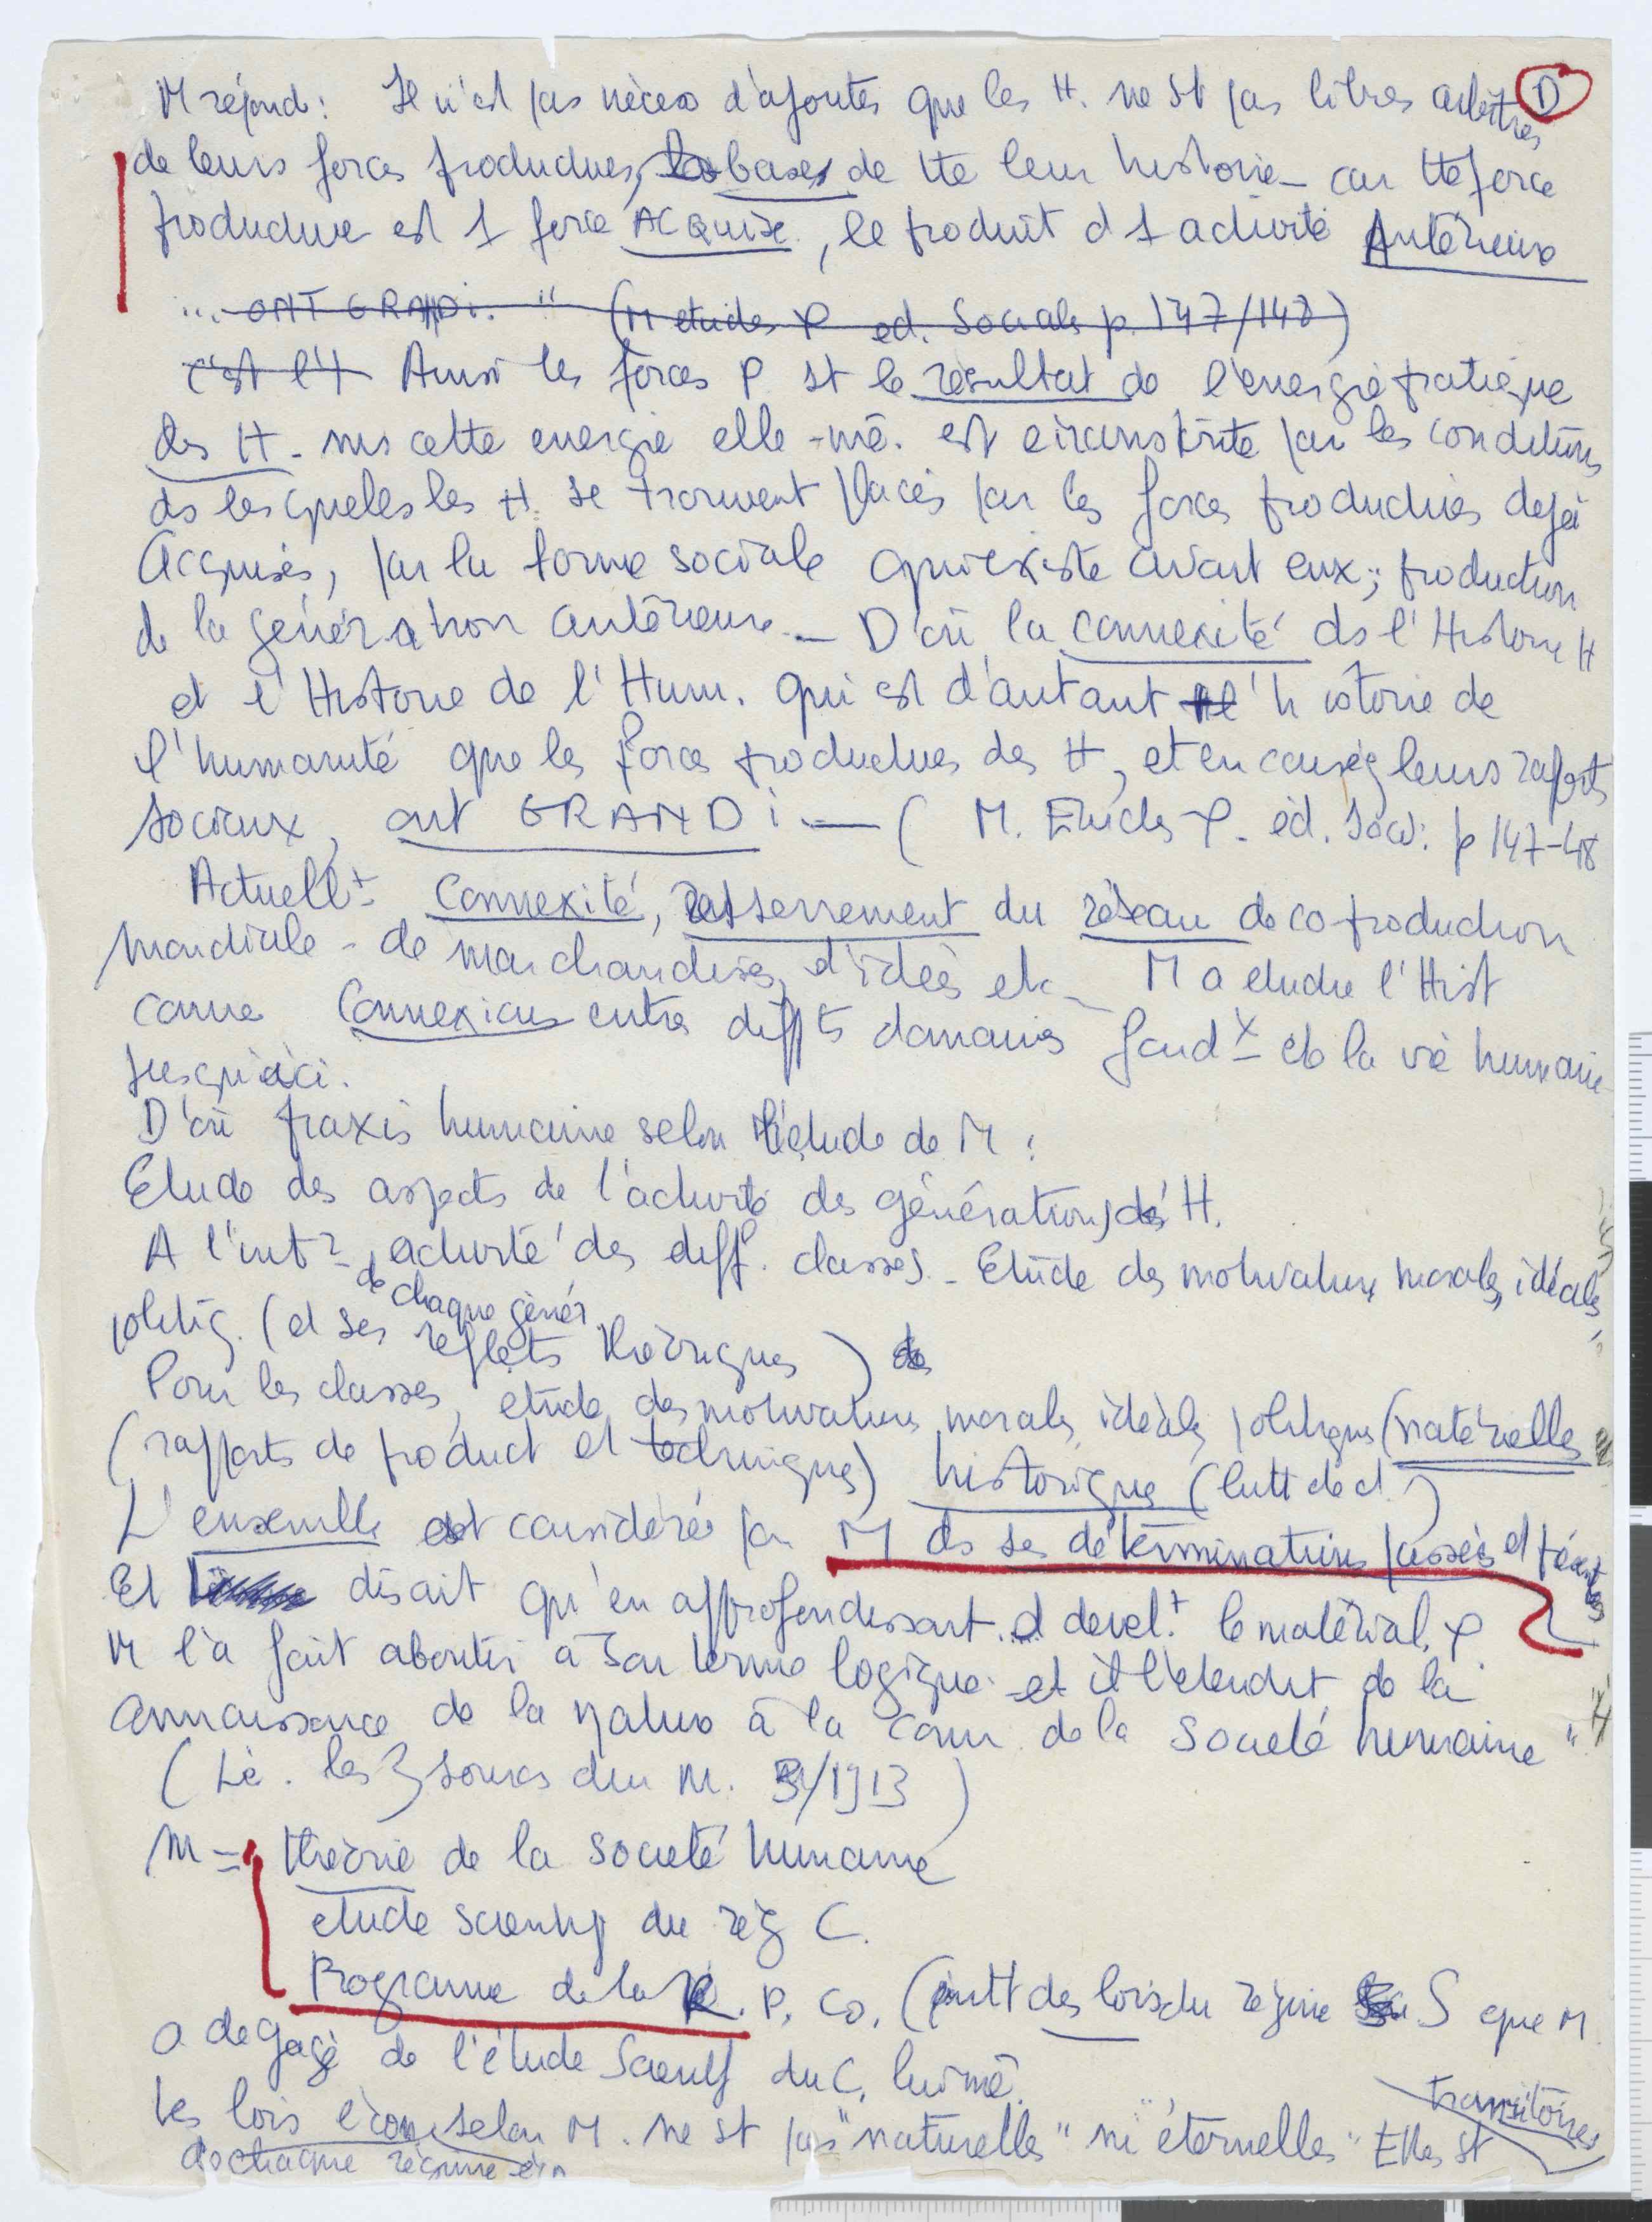 M répond : Il n'est pas nécess d'ajouter que les H. ne st pas libres arbitres D
de leurs forces productives, bases de tte leur histoire – car tte force
productive est 1 force ACQUISE, le produit d 1 activité Antérieure
"... ONT GRANDi. " (M etudes P ed. Sociales p. 147/148)
c'est l'H Ainsi les forces P st le résultat de l'energie pratique
des H - ms cette energie elle-mê. est circonscrite par les conditions
ds lesqueles les H. se trouvent placés par les forces productives dejà
Acquises, par la forme sociale qui existe avant eux ; production
de la génération antérieure. – D'où la connexité ds l'Histoire H
et l'Histoire de l'Hum. qui est d'autant l'histoire de
l'humanité que les forces productives des H, et en conséq leurs rapports
sociaux, ont GRANDi — ( M. Etudes P. éd. Soc : p 147-48
Actuellt Connexité, resserrement du réseau de coproduction
mondiale - de marchandises, d'idées etc – M a etudié l'Hist
comme Connexions entre diffts domaines fondx de la vie humaine
jusqu'ici.
D'où praxis humaine selon l'étude de M :
Etude des aspects de l'activité des générations des H.
A l'intr activité des diff. classes - Etude des motivations morales, idéales
de chaque génér
politiq. (et ses reflets théoriques)
Pour les classes, etude des motivations morales idéales politiques (matérielles
(rapports de product et techniques) historique (lutt de cl.)
L'ensemble est considéré par M ds ses déterminations passées et présentes
Et disait qu'en approfondissant et develt le matérial. P
M l'a fait aboutir à son terme logique et il l'etendit de la
connaissance de la nature à la conn de la Société humaine "
(Lé. les 3 sources du M. 3/1913)
M = théorie de la société humaine
etude scientif du rég C.
Programme de la R. P. Co. ( des lois du régime S que M
a degagé de l'étude Scientif du C. lui mê.
Les lois écon selon M. ne st pas "naturelles" ni "éternelles" Elles st transitoires
ds chaque régime